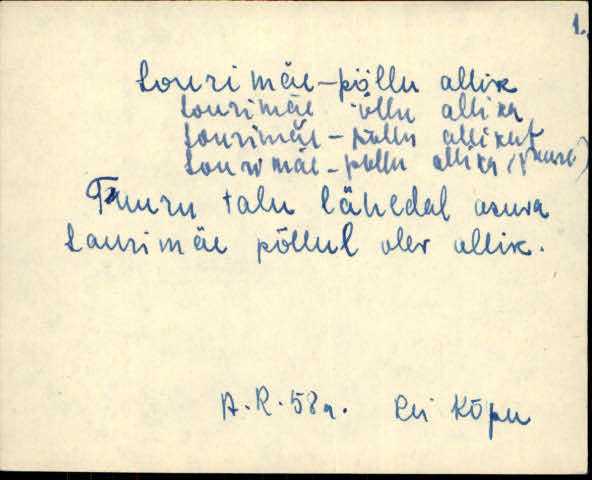 1.
Laurimäe-põllu allik
Laurimäe põllu allika
Laurimäe-põllu allikut
Laurimäe-põllu allika
Tauru talu lähedal asuva
Laurimäe põllul olev allik.
A.R. 58a. Rei Kõpu